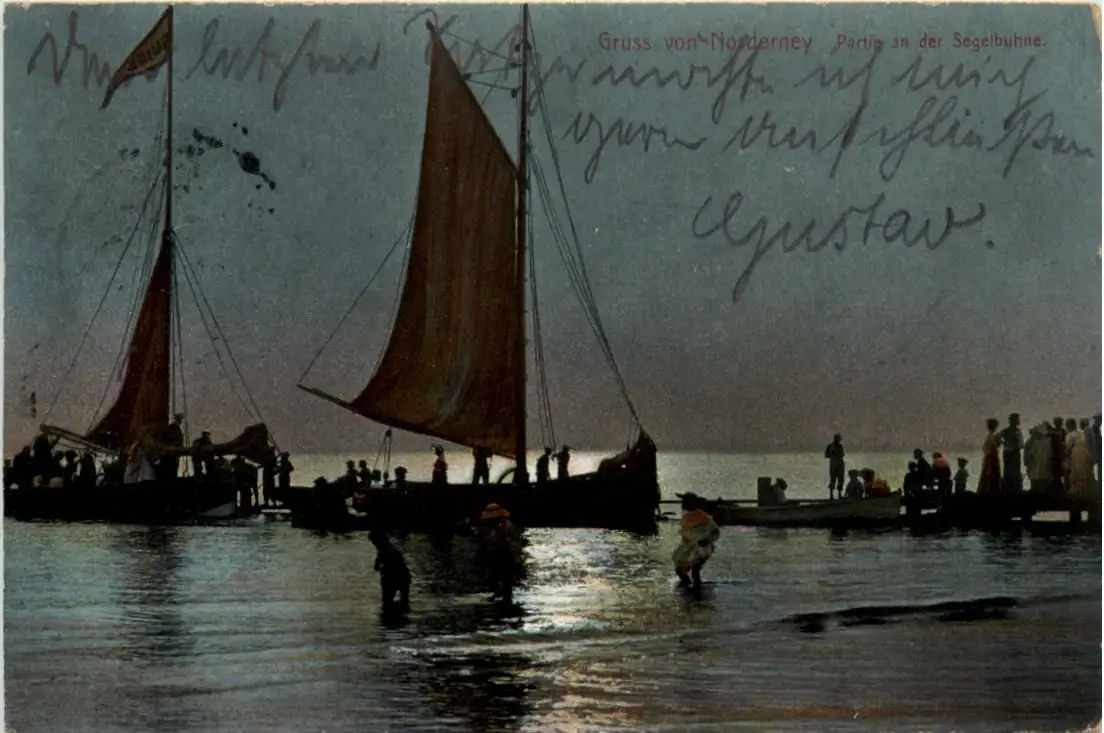 Gruss von Norderney Partie an der Segelbuhne.
letzten möchte ich mich
gern anschließen
Gustav.